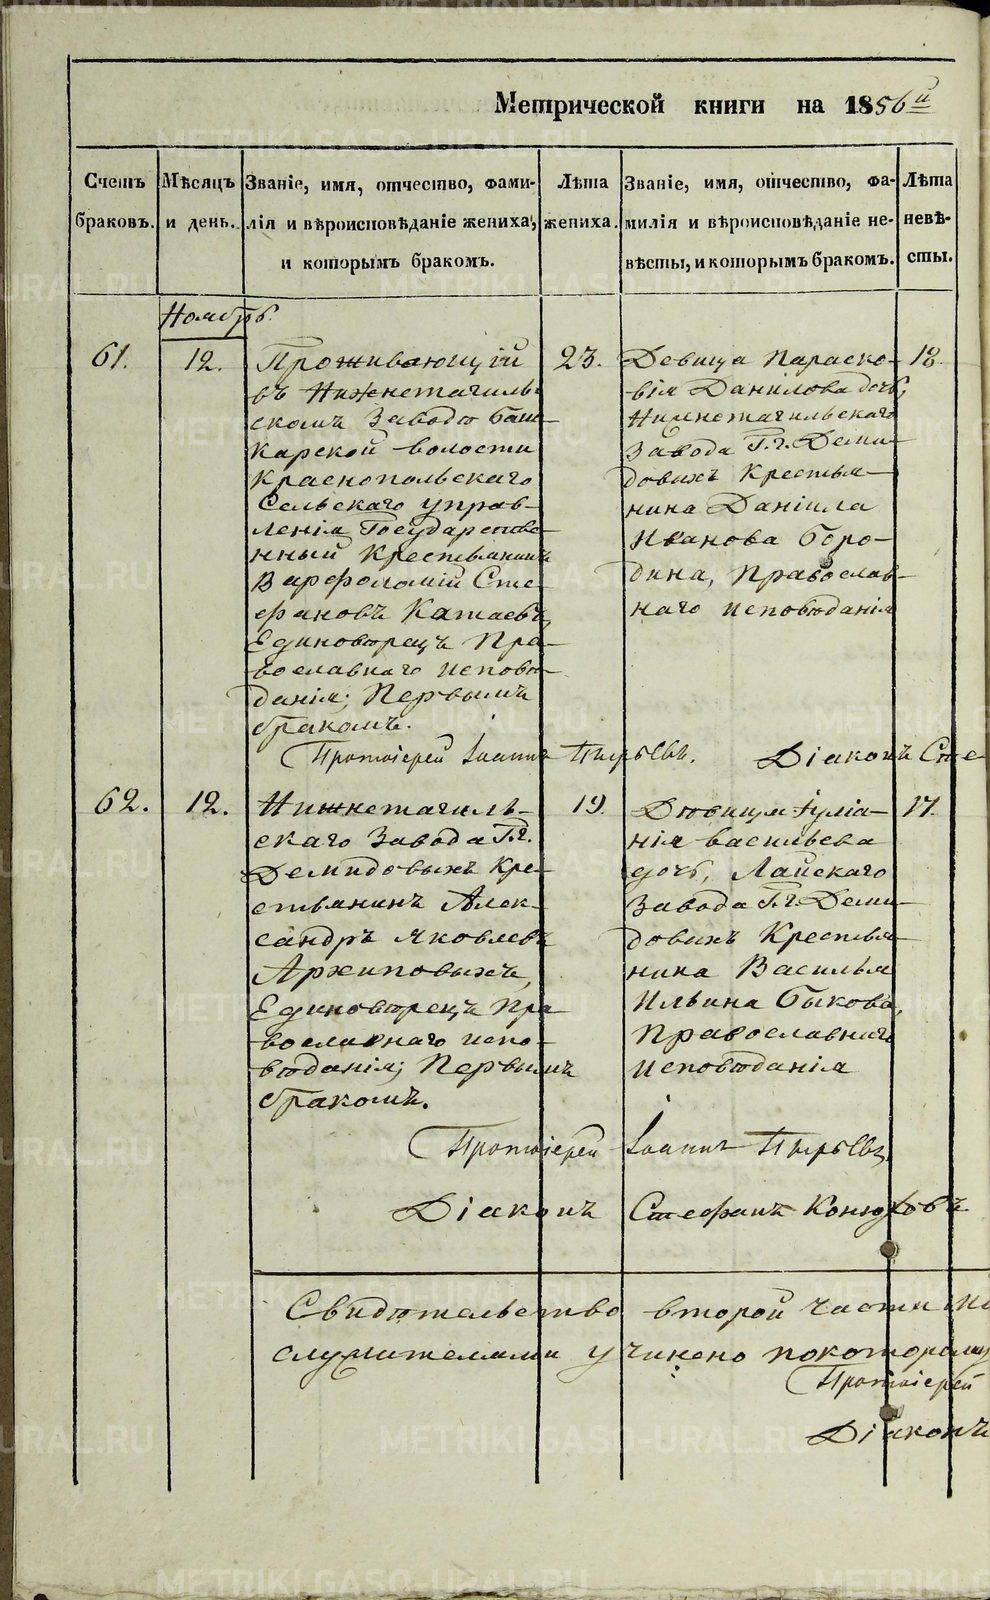 Метрической книги на 1856й
Счетъ браковъ.
Мѣсяцъ и день.
Званіе, имя, отчество, фами-
лія и вѣроисповѣданіе жениха,
и которымъ бракомъ.
Лѣта жениха.
Званіе, имя, отчество, фа-
милія и вѣроисповѣданіе не-
вѣсты, и которымъ бракомъ.
Лѣта невѣ-
сты.
Ноябрь.
61.
12.
Проживающій
въ Нижнетагиль-
скомъ Заводѣ Баш-
карской волости
Краснопольскаго
Сельскаго управ-
ленія Государстве-
нный Крестьянинъ
Варфоломій Сте-
фановъ Катаевъ,
Единовѣрецъ Пра-
вославнаго исповѣ-
данія; Первымъ
бракомъ.
23.
Девица Параско-
вія Данилова дочь,
Нижнетагильскаго
Завода Г.г. Деми-
довыхъ Крестья-
нина Даніила
Иванова Боро-
дина, Православ-
наго исповѣданія
18.
Протоіерей Іоаннъ Пырьевъ.
Діаконъ Сте
62.
12.
Нижнетагиль-
скаго Завода Г.г.
Демидовыхъ Кре-
стьянинъ Алек-
сандръ Яковлевъ
Архиповыхъ,
Единовѣрецъ Пра-
вославнаго испо-
вѣданія; Первымъ
бракомъ.
19.
Дѣвица Іуліа-
нія Васильева
дочь, Лайскаго
Завода Г.г. Деми-
довыхъ Крестья-
нина Василья
Ильина Быкова,
Православнаго
исповѣданія
17.
Протоіерей Іоаннъ Пырьевъ.
Діаконъ Стефанъ Конюховъ
Свидѣтельство второй части
служителями учинено покоторому
Протоіерей
Діаконъ
METRIKI.GASO-URAL.RU